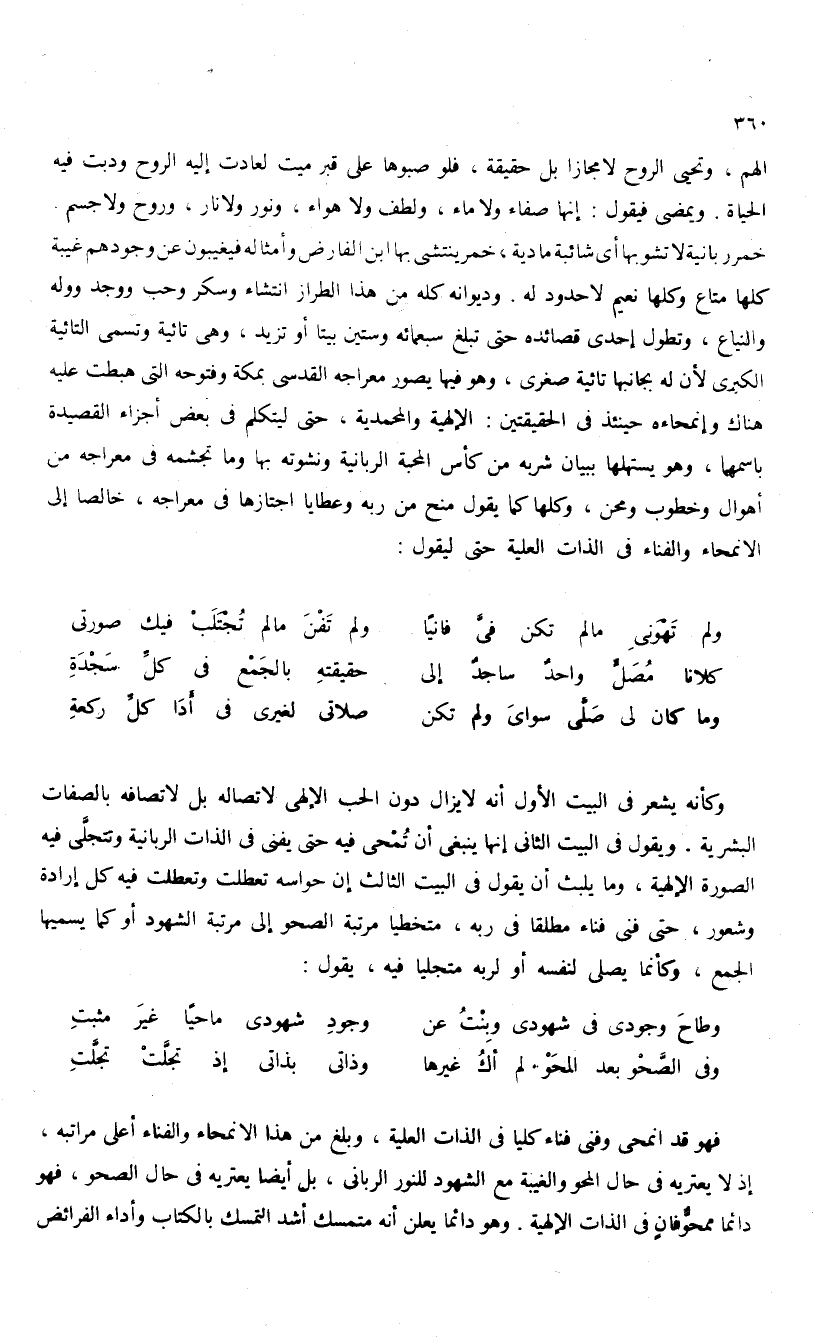 ٣٦٠
الهم ، وتحيى الروح لامجازا بل حقيقة ، فلو صبوها على قبر ميت لعادت إليه الروح ودبت فيه
الحياة . ويمضى فيقول : إنها صفاء ولا ماء ، ولطف ولا هواء ، ونور ولانار ، وروح ولاجسم .
خمر ربانية لا تشوبها أى شائبة مادية ، خمر ينتشى بها ابن الفارض وأمثاله فيغيبون عن وجودهم غيبة
كلها متاع وكلها نعيم لاحدود له . وديوانه كله من هذا الطراز انتشاء وسكر وحب ووجد ووله
والنياع ، وتطول إحدى قصائده حتى تبلغ سبعمائه وستين بيتا أو تزيد ، وهى تائية وتسمى التائية
الكبرى لأن له بجانبها تائية صغرى ، وهو فيها يصور معراجه القدسى بمكة وفتوحه التى هبطت عليه
هناك وإنمحاءه حينئذ فى الحقيقتين : الإلهية والمحمدية ، حتى ليتكلم فى بعض أجزاء القصيدة
باسمها ، وهو يستهلها ببيان شربه من كأس المحبة الربانية ونشوته بها وما تجشمه فى معراجه من
أهوال وخطوب ومحن ، وكلها كما يقول منح من ربه وعطايا اجتازها فى معراجه ، خالصا إلى
الانمحاء والفناء فى الذات العلية حتى ليقول :
ولم تَهْوَنِى مالم تكن فىَّ فانيًا ولم تَفْنَ مالم تُجْتَلَبْ فيك صورتى
كلانا مُصَلٍّ واحدٌ ساجدٌ إلى حقيقتهِ بالجَمْع فى كلِّ سَجْدَةِ
وما كان لى صَلَّى سواىَ ولم تكن صلاتى لغيرى فى أَدَا كلِّ ركعةِ
وكأنه يشعر فى البيت الأول أنه لايزال دون الحب الإلهى لاتصاله بل لاتصافه بالصفات
البشرية . ويقول فى البيت الثانى إنها ينبغى أن تُمْحى فيه حتى يفنى فى الذات الربانية وتتجلَّى فيه
الصورة الإلهية ، وما يلبث أن يقول فى البيت الثالث إن حواسه تعطلت وتعطلت فيه كل إرادة
وشعور ، حتى فنى فناء مطلقا فى ربه ، متخطيا مرتبة الصحو إلى مرتبة الشهود أو كما يسميها
الجمع ، وكأنما يصلى لنفسه أو لربه متجليا فيه ، يقول :
وطاحَ وجودى فى شهودى وبِنْتُ عن وجودِ شهودى ماحيًا غيرَ مثبتِ
وفى الصَّحْو بعد المحَوْ لم أكُ غيرها وذاتى بذاتى إذ تجلَّتْ تجلَّتِ
فهو قد انمحى وفنى فناء كليا فى الذات العلية ، وبلغ من هذا الانمحاء والفناء أعلى مراتبه ،
إذ لا يعتريه فى حال المحو والغيبة مع الشهود للنور الربانى ، بل أيضا يعتريه فى حال الصحو ، فهو
دائما ممحوٌّ فانٍ فى الذات الإلهية . وهو دائما يعلن أنه متمسك أشد التمسك بالكتاب وأداء الفرائض